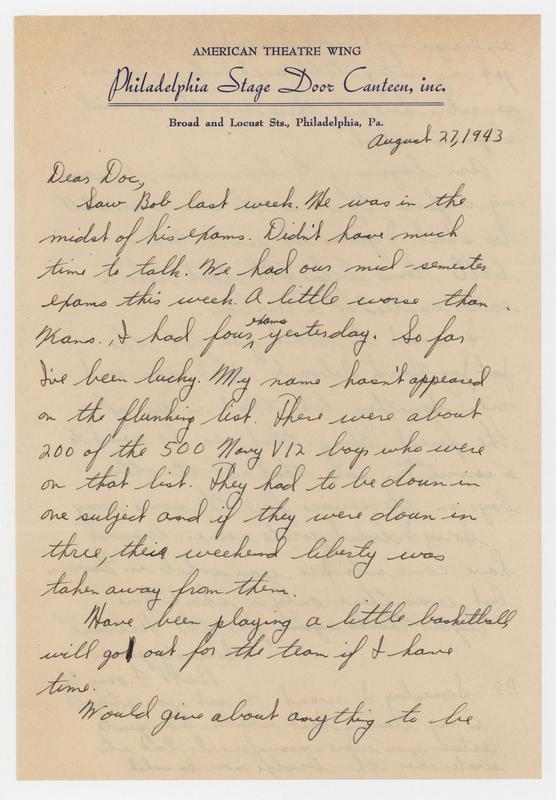 AMERICAN THEATRE WING
Philadelphia Stage Door Canteen, inc.
Broad and Locust Sts., Philadelphia, Pa.
August 27, 1943
Dear Doc,
Saw Bob last week. He was in the
midst of his exams. Didn't have much
time to talk. We had our mid-semester
exams this week. A little worse than
Kans., I had four exams yesterday. So far
I've been lucky. My name hasn't appeared
on the flunking list. There were about
200 of the 500 Navy V12 boys who were
on that list. They had to be down in
one subject and if they were down in
three, their weekend liberty was
taken away from them.
Have been playing a little basketball,
will go out for the team if I have
time.
Would give about anything to be